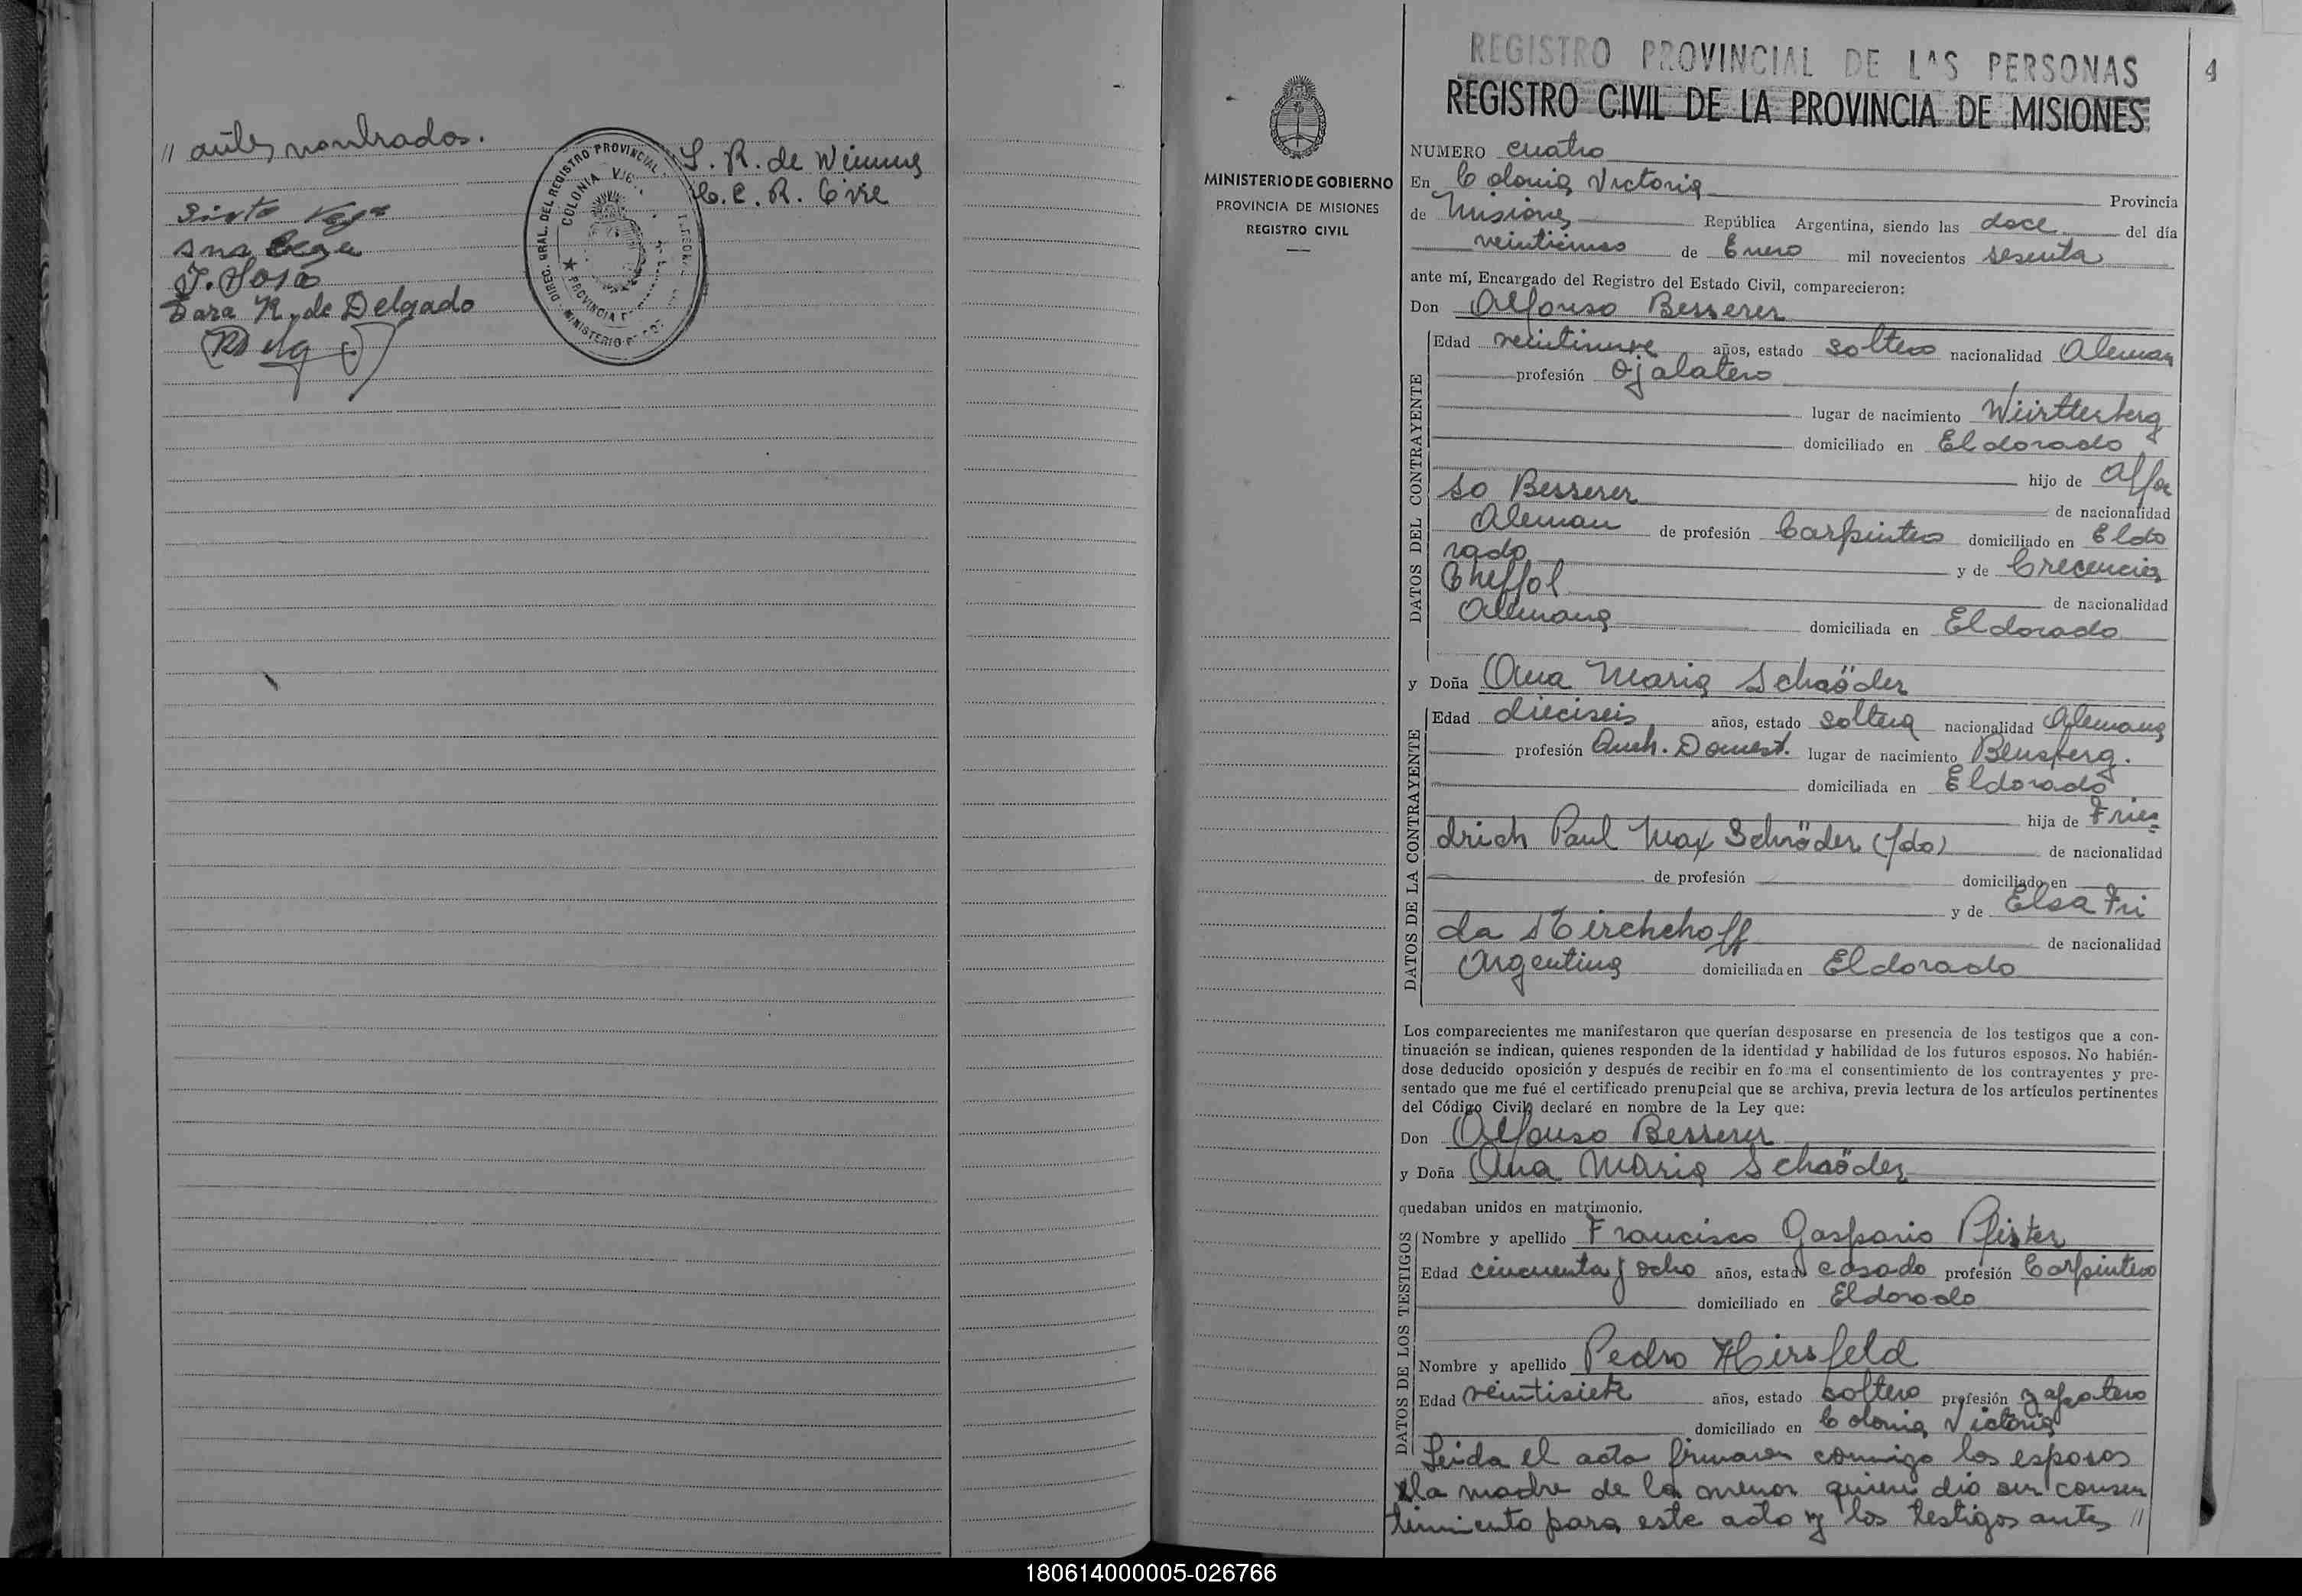 // antes nombrados.
S. R. de Wimmer
E. E. R. Civil
Sixto Vega
Ana Vega
J. Sosa
Sara R. de Delgado
DIREC. GRAL. DEL REGISTRO PROVINCIAL
COLONIA VIC
PROVINCIA
MINISTERIO
REGISTRO PROVINCIAL DE LAS PERSONAS
4
REGISTRO CIVIL DE LA PROVINCIA DE MISIONES
MINISTERIO DE GOBIERNO
PROVINCIA DE MISIONES
REGISTRO CIVIL
NUMERO cuatro
En Colonia Victoria Provincia
de Misiones República Argentina, siendo las doce del día
de Enero mil novecientos sesenta
ante mí, Encargado del Registro del Estado Civil, comparecieron:
Don Alfonso Besserer
DATOS DEL CONTRAYENTE
Edad veintinueve años, estado soltero nacionalidad Aleman
profesión Ojalatero
lugar de nacimiento Württerberg
domiciliado en Eldorado
hijo de Alfon
so Besserer
de nacionalidad
Aleman de profesión Carpintero domiciliado en Eldo
rado y de Crecencia
Cheffol
de nacionalidad
Alemana domiciliada en Eldorado
y Doña Ana Maria Schröder
DATOS DE LA CONTRAYENTE
Edad dieciseis años, estado soltera nacionalidad Alemana
profesión Queh. Domest. lugar de nacimiento Bensberg.
domiciliada en Eldorado
hija de Frie=
drich Paul Max Schröder (fdo)
de nacionalidad
de profesión domiciliado en
y de Elsa Fri
da Kirchhoff
de nacionalidad
Argentina domiciliada en Eldorado
Los comparecientes me manifestaron que querían desposarse en presencia de los testigos que a con-
tinuación se indican, quienes responden de la identidad y habilidad de los futuros esposos. No habién-
dose deducido oposición y después de recibir en forma el consentimiento de los contrayentes y pre-
sentado que me fué el certificado prenupcial que se archiva, previa lectura de los artículos pertinentes
del Código Civil, declaré en nombre de la Ley que:
Don Alfonso Besserer
y Doña Ana Maria Schröder
quedaban unidos en matrimonio.
DATOS DE LOS TESTIGOS
Nombre y apellido Francisco Gaspario Pfister
Edad cincuenta y ocho años, estado casado profesión Carpintero
domiciliado en Eldorado
Nombre y apellido Pedro Hirsfeld
Edad veintisiete años, estado soltero profesión zapatero
domiciliado en Colonia Victoria
Leida el acta firmaron conmigo los esposos
la madre de la menor quien dio su consen
timiento para este acto y los testigos antes //
180614000005-026766